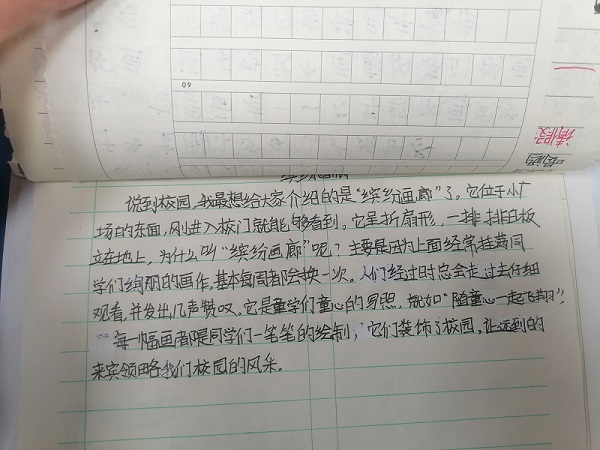 60
请假
缤纷画廊
说到校园,我最想给大家介绍的是“缤纷画廊”了。它位于小广
场的东面,刚进入校门就能够看到。它呈折扇形,一排排白板
立在地上,为什么叫“缤纷画廊”呢?主要是因为上面经常挂着同
学们绚丽的画作,基本每周都会换一次。人们经过时总会走过去仔细
观看,并发出几声赞叹。它是童学们童心的写照,就如“随童心一起飞翔”!
每一幅画都是同学们一笔笔的绘制,它们装饰了校园,让远到的
来宾领略我们校园的风采。